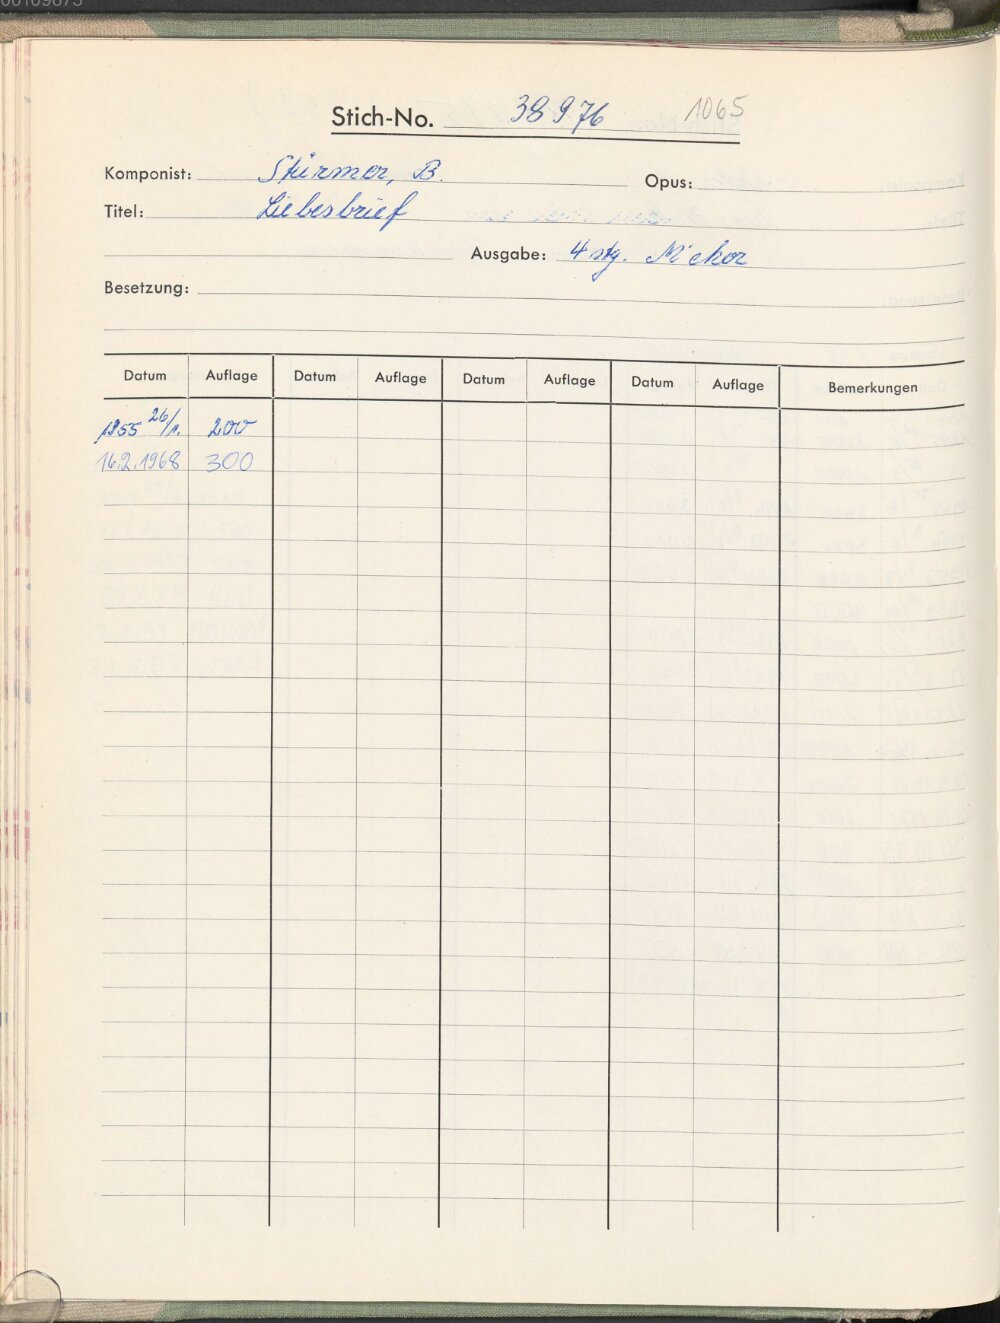 00109675
Stich-No. 38976 1065
Komponist: Stürmer, B. Opus:
Titel: Liebesbrief
Ausgabe: 4 stg. M'chor
Besetzung:
Datum Auflage Datum Auflage Datum Auflage Datum Auflage Bemerkungen
1955 26/1. 200
16.2.1968 300